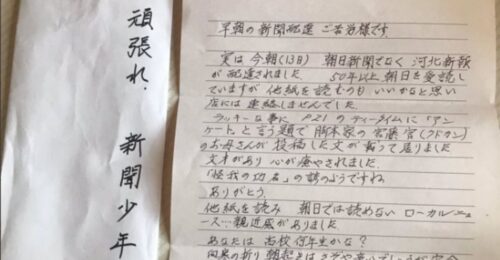 頑張れ、新聞少年
早朝の新聞配達 ご苦労様です
実は今朝(13日) 朝日新聞でなく 河北新報
が配達されました 50年以上 朝日を愛読し
ていますが 他紙を読むのも いいかなと思い
店には連絡しませんでした
ラッキーな事に P21の ティータイムに「アン
ケート」と言う題で 脚本家の宮藤官(クドカン)
のお母さんが 投稿した文が載って居りました
文才があり 心が癒やされました
「怪我の功名」の諺のようですね
ありがとう
他紙を読み 朝日では読めない ローカルニュ
ース…親近感がありました
あなたは 高校 何年生かな?